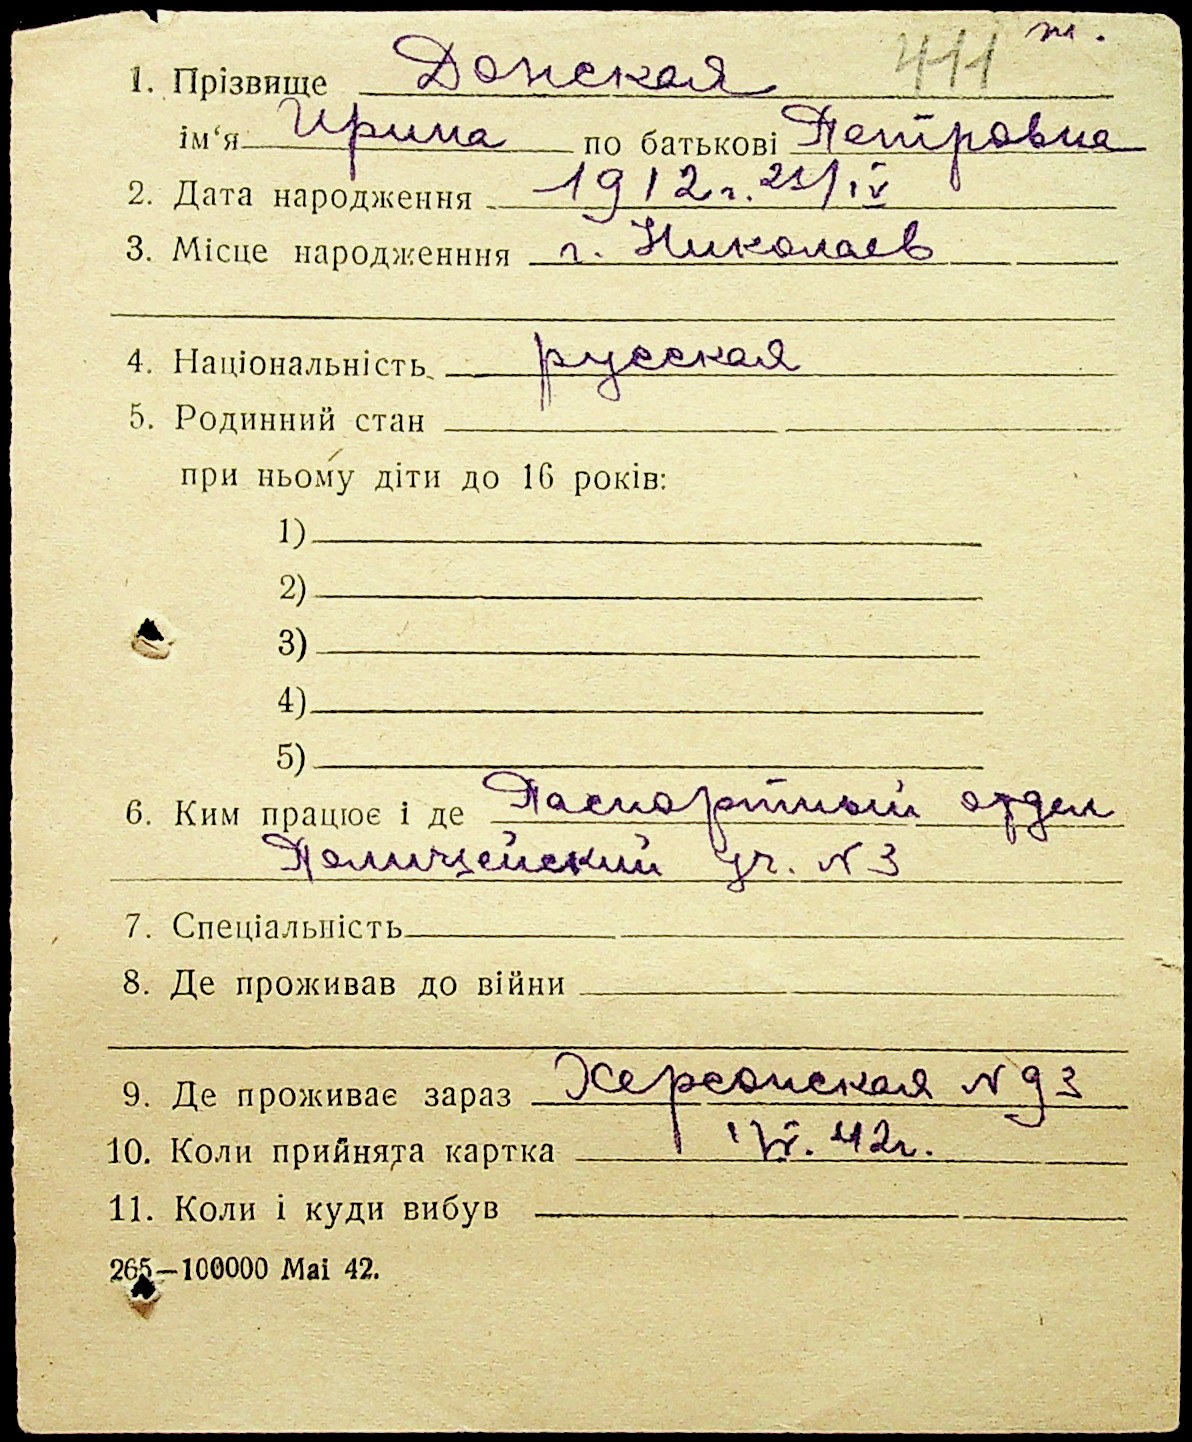 411 ж.
1. Прізвище Донская
ім‘я Ирина по батькові Петровна
2. Дата народження 1912 г. 21/IV
3. Місце народженння г. Николаев
4. Національність русская
5. Родинний стан
при ньому діти до 16 років:
1)
2)
3)
4)
5)
6. Ким працює і де Паспортный отдел
Полицейский уч. N 3
7. Спеціальність
8. Де проживав до війни
9. Де проживає зараз Херсонская N 93
10. Коли прийнята картка 42 г.
11. Коли і куди вибув
265—100000 Mai 42.